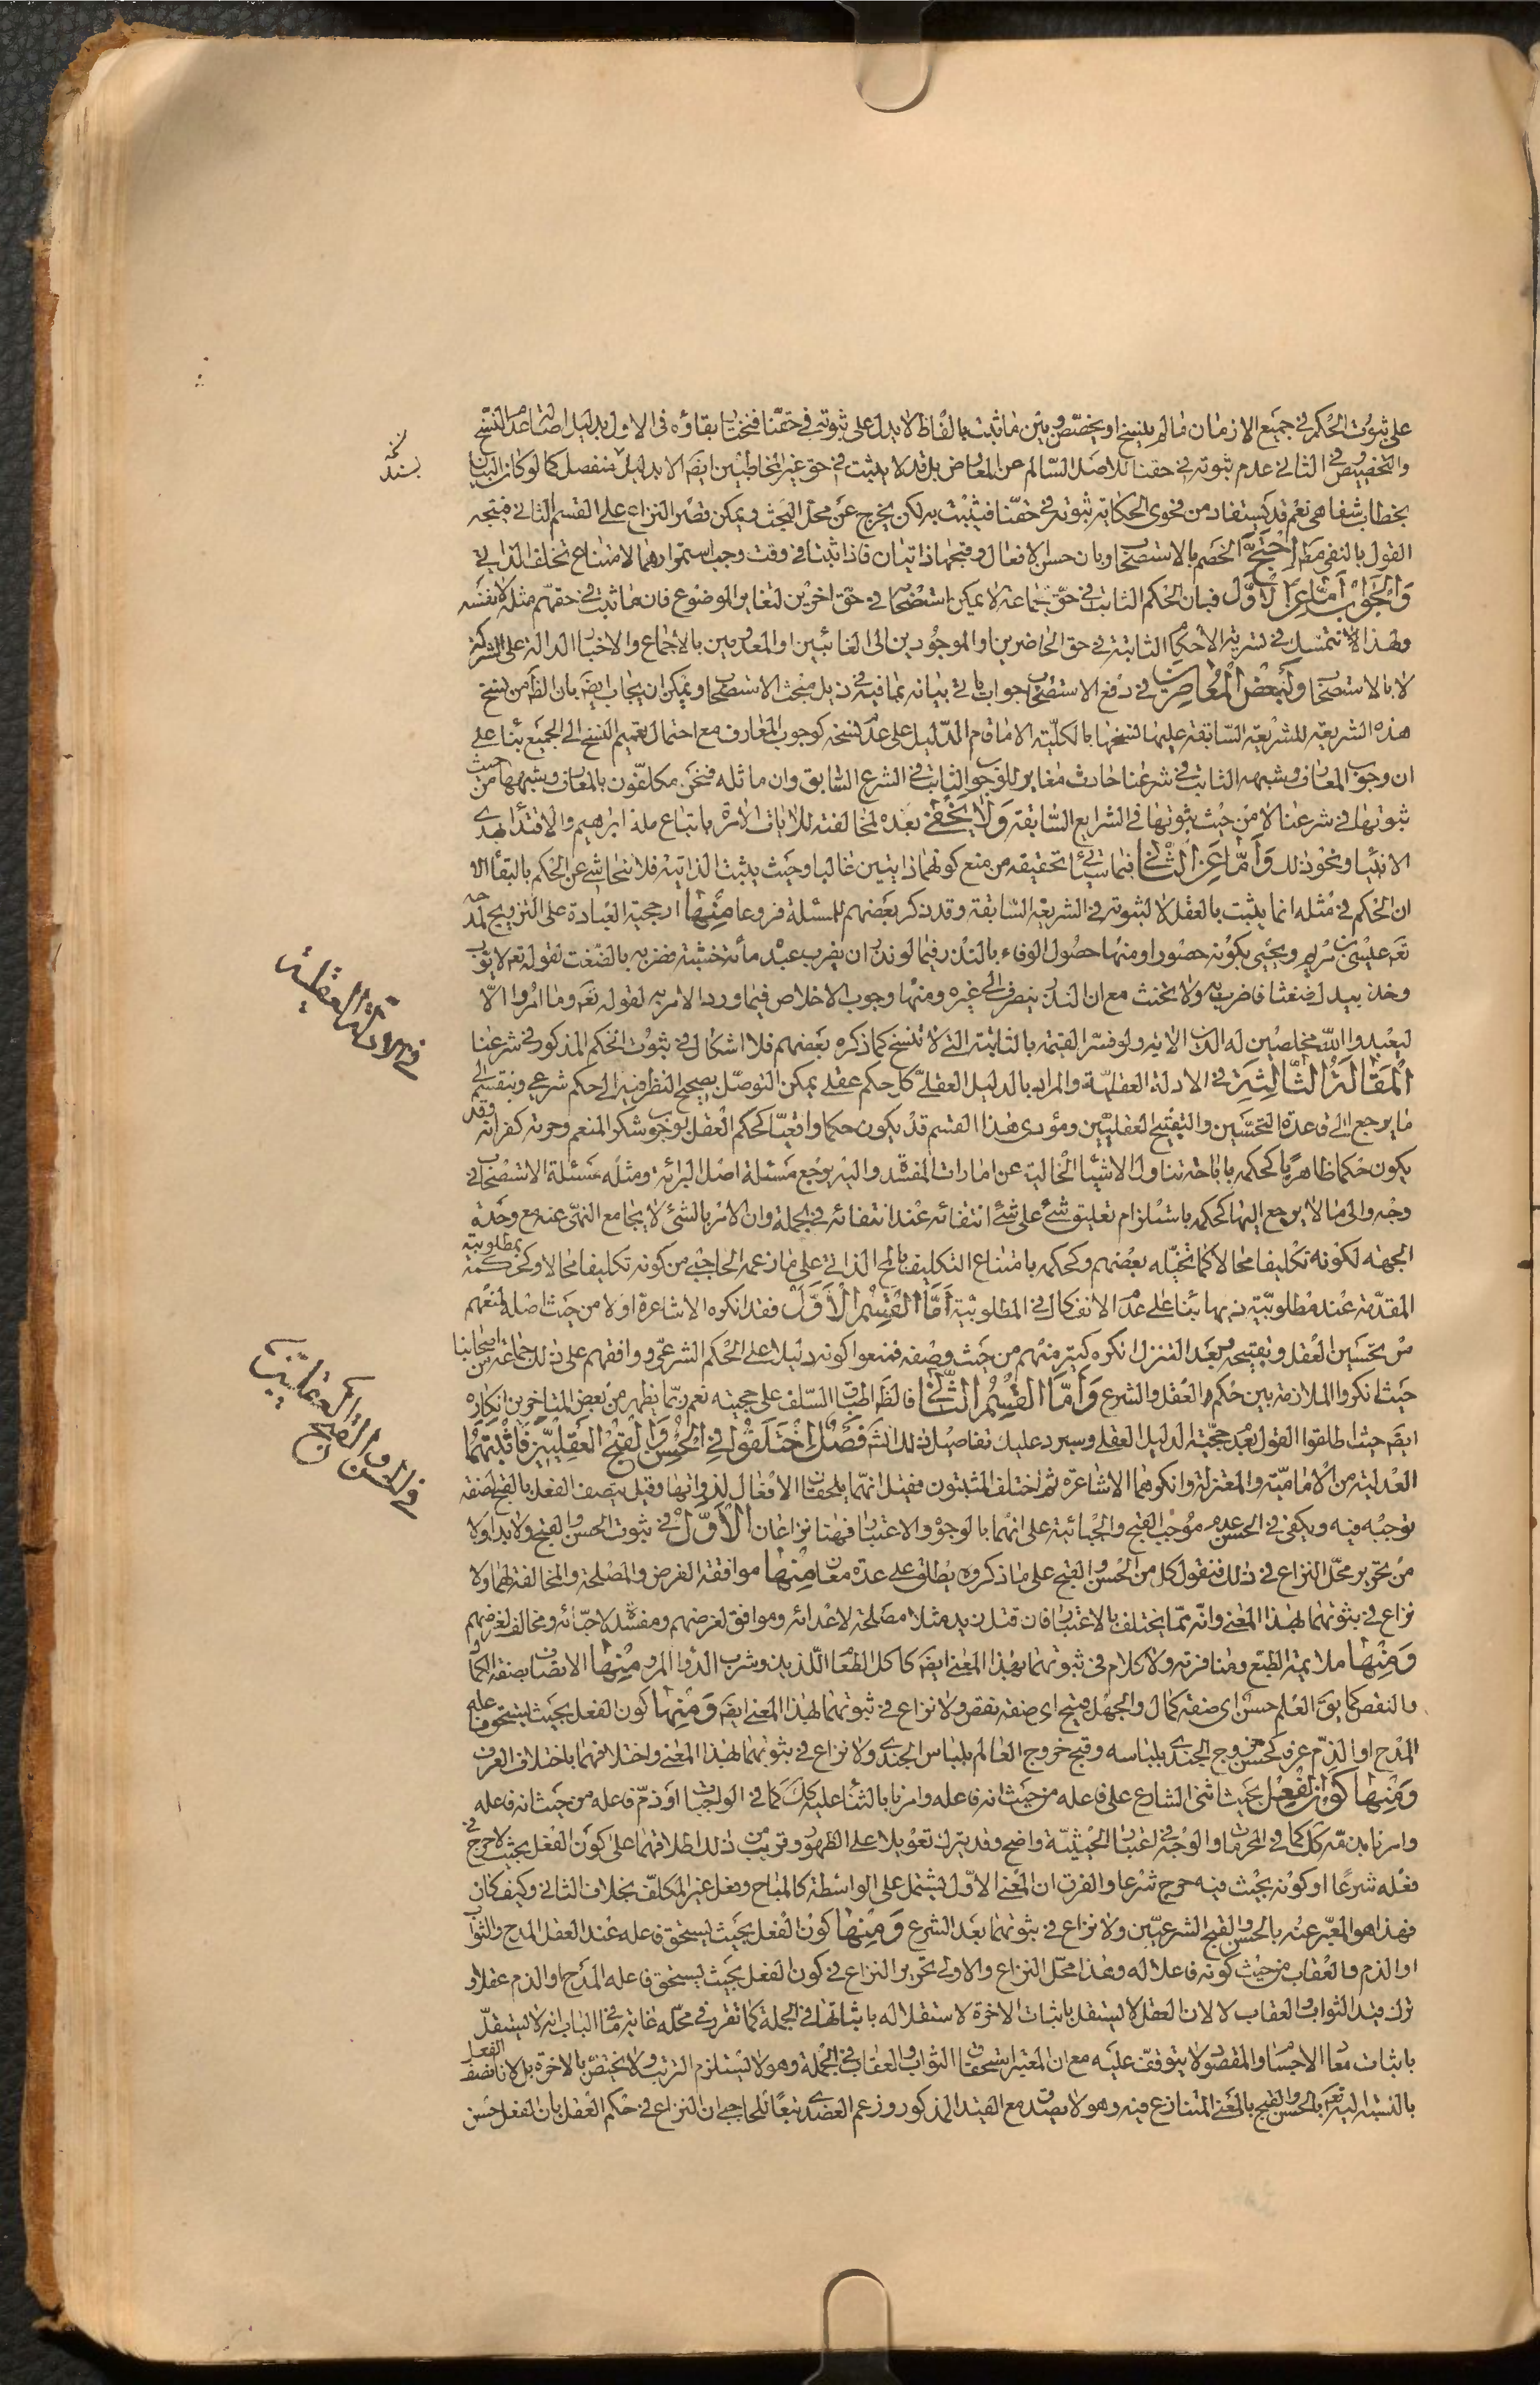 على ثبوت الحكم في جميع الازمان ما لم ينسخ او يخصّص وبين ما ثبت بالفاظ لا يدل على ثبوته في حقنا فنختار بقاؤه في الاول بدليل اصالة عدم النسخ
والتخصيص وفي الثاني عدم ثبوته في حقنا للاصل السّالم عن المعارض بل قد لا يثبت في حق غير المخاطبين ايضَ الا بدليل منفصل كما لو كان البيان
بخطاب شفاهي نعم قد يستفاد من فحوى الحكاية ثبوته في حقنا فيثبت به لكن يخرج عن محلّ البحث ويمكن قصر النزاع على القسم الثاني فيتجه
القول بالنفي مطَ احتجّ الخصم بالاستصحاب وبان حسن الافعال وقبحها ذاتيان فاذا ثبتا في وقت وجب استمرارهما لامتناع تخلف الذاتي
والجواب امّا عن الاوّل فبان الحكم الثابت في حقّ جماعة لا يمكن استصحابه في حق اخرين لتغاير الموضوع فان ما ثبت في حقهم مثله لا نفسه
ولهذا لا نتمسك في تسرية الاحكام الثابتة في حق الحاضرين او الموجودين الى الغائبين او المعدومين بالاجماع والاخبار الدالة على الشركة
لا بالاستصحاب ولبعض المعاصرين في دفع الاستصحاب جواب ياتي بيانه بما فيه في ذيل مبحث الاستصحاب ويمكن ان يجاب ايضَ بان الظَ من نسخ
هذه الشريعة للشريعة السّابقة عليها نسخها بالكلّية الا ما قام الدّليل على عدم نسخه كوجوب المعارف مع احتمال تعميم النسخ الى الجميع بناء على
ان وجوب المعارف وشبهه الثابت في شرعنا حادث مغاير للوجوب الثابت في الشرع السّابق وان ماثله فنحن مكلفون بالمعارف وشبهها من حيث
ثبوتها في شرعنا لا من حيث ثبوتها في الشرايع السّابقة ولا يخفى بعده لمخالفته للايات الامرة باتباع ملة ابراهيم والاقتداء بهدى
الانبياء ونحو ذلك وامّا عن الثّاني فبما سياتي تحقيقه من منع كونهما ذاتيين غالبا وحيث يثبت الذاتية فلا نتحاشى عن الحكم بالبقاء الا
ان الحكم في مثله انما يثبت بالعقل لا لثبوته في الشريعة السّابقة وقد ذكر بعضهم للمسئلة فروعا منها ارجحية العبادة على التزويج لمدحه
تعَ عليسى بن مريم ويحيى بكونه حصورا ومنها حصول الوفاء بالنذر فيما لو نذر ان يضرب عبده مأة خشبة فضربه بالضغث لقوله تعَ لايوب
وخذ بيدك ضغثا فاضرب به ولا تحنث مع ان النذر ينصرف الى غيره ومنها وجوب الاخلاص فيما ورد الامر به لقوله تعَ وما امروا الّا
ليعبدوا الله مخلصين له الدين الاية ولو فسّر القيمة بالثابتة التي لا تنسخ كما ذكره بعضهم فلا اشكال في ثبوت الحكم المذكور في شرعنا
المقالة الثّالثة في الادلة العقليّة والمراد بالدليل العقليّ كل حكم عقلي يمكن التوصّل بصحيح النظر فيه الى حكم شرعي وينقسم الى
ما يرجع الى قاعدة التحسّين والتقبيح العقليّين ومؤدى هذا القسم قد يكون حكما واقعيّا كحكم العقل بوجوب شكر المنعم وحرمة كفرانه وقد
يكون حكما ظاهريا كحكمه باباحة تناول الاشياء الخالية عن امارات المفسدة واليه يرجع مسئلة اصل البرائة ومثله مسئلة الاستصحاب في
وجه والى ما لا يرجع اليها كحكمه باستلزام تعليق شئ على شئ انتفائه عند انتفائه في الجملة وان الامر بالشئ لا يجامع النهي عنه مع وحدة
الجهة لكونه تكليفا محالا كما تخيّله بعضهم وكحكمه بامتناع التكليف بالمحَ الذاتي على ما زعمه الحاجبي من كونه تكليفا محالا وكحكمه بمطلوبية
المقدّمة عند مطلوبيّة ذيها بناء على عدم الانفكاك في المطلوبية أمّا القسم الاوّل فقد انكره الاشاعرة اولا من حيث اصله لمنعهم
من تحسين العقل وتقبيحه وبعد التنزل انكره كثير منهم من حيث وصفه فمنعوا كونه دليلا على الحكم الشرعي ووافقهم على ذلك جماعة من اصحابنا
حيث انكروا الملازمة بين حكم العقل والشرع وأمّا القسم الثّاني فالظَ اطباق السّلف على حجيته نعم ربّما يظهر من بعض المتاخرين انكاره
ايضَ حيث اطلقوا القول بعدم حجّية الدليل العقلي وسيرد عليك تفاصيل ذلك انشَ فصل اختلفوا في الحسن والقبح العقليين فاثبتهما
العدلية من الاماميّة والمعتزلة وانكرهما الاشاعرة ثم اختلف المثبتون فقيل انهما يلحقان الافعال لذواتها وقيل يتصف الفعل بالقبح لصفة
توجبه فيه ويكفي في الحسن عدم موجب القبح والجبائية على انهما بالوجوه والاعتبار فهنا نزاعان الاوّل في ثبوت الحسن والقبح ولا بد اولا
من تحرير محلّ النزاع في ذلك فنقول كل من الحسن والقبح على ما ذكروه يطلق على عدة معان منها موافقة الغرض والمصلحة والمخالفة لهما ولا
نزاع في ثبوتهما بهذا المعنى وانّه ممّا يختلف بالاعتبار فان قتل زيد مثلا مصلحة لاعدائه وموافق لغرضهم ومفسدة لاحبّائه ومخالف لغرضهم
ومنها ملايمة الطبع ومنافرته ولا كلام في ثبوتهما بهذا المعنى ايضَ كاكل الطعام اللّذيذ وشرب الدّواء المر ومنها الاتصاف بصفة الكمال
والنقص كما يقَ العلم حسن اى صفة كمال والجهل قبيح اى صفة نقص ولا نزاع في ثبوتهما بهذا المعنى ايضَ ومنها كون الفعل بحيث يستحق فاعله
المدح او الذمّ عرفا كحسن خروج الجندى بلباسه وقبح خروج العالم بلباس الجندى ولا نزاع في ثبوتهما بهذا المعنى واختلافهما باختلاف العرف
ومنها كون الفعل بحيث اثنى الشارع على فاعله من حيث انه فاعله وامرنا بالثناء عليه كَكَ كما في الواجبات او ذمّ فاعله من حيث انه فاعله
وامرنا بذمّه كَكَ كما في المحرمات والوجه في اعتبار الحيثيّة واضح وقد يترك تعويلا على الظهور وقريب من ذلك اطلاقهما على كون الفعل بحيث لا حرج في
فعله شرعًا او كونه بحيث فيه حرج شرعا والفرق ان المعنى الاوّل يشتمل على الواسطة كالمباح وفعل غير المكلّف بخلاف الثاني وكيف كان
فهذا هو المعبّر عنه بالحسن والقبح الشرعيّين ولا نزاع في ثبوتهما بعد الشرع ومنها كون الفعل بحيث يستحق فاعله عند العقل المدح والثواب
او الذم والعقاب من حيث كونه فاعلا له وهذا محلّ النزاع والاولى تحرير النزاع في كون الفعل بحيث يستحق فاعله المدح او الذم عقلا و
ترك قيد الثواب والعقاب لا لان العقل لا يستقل باثبات الاخرة لاستقلاله باثباتها في الجملة كما تقرر في محلّه غاية ما في الباب انه لا يستقلّ
باثبات معاد الاجساد والمقصود لا يتوقف عليه مع ان المعتبر استحقاق الثواب والعقاب في الجملة وهو لا يستلزم الترتب ولا يختص بالاخرة بل لانا نصف الفعل
بالنسبة اليه تعَ بالحسن والقبح بالمعنى المتنازع فيه وهو لا يصدق مع القيد المذكور وزعم العضدى تبعًا للحاجبي ان النزاع في حكم العقل بان الفعل حسن
في الادلة العقلية
في الحسن والقبح العقليين